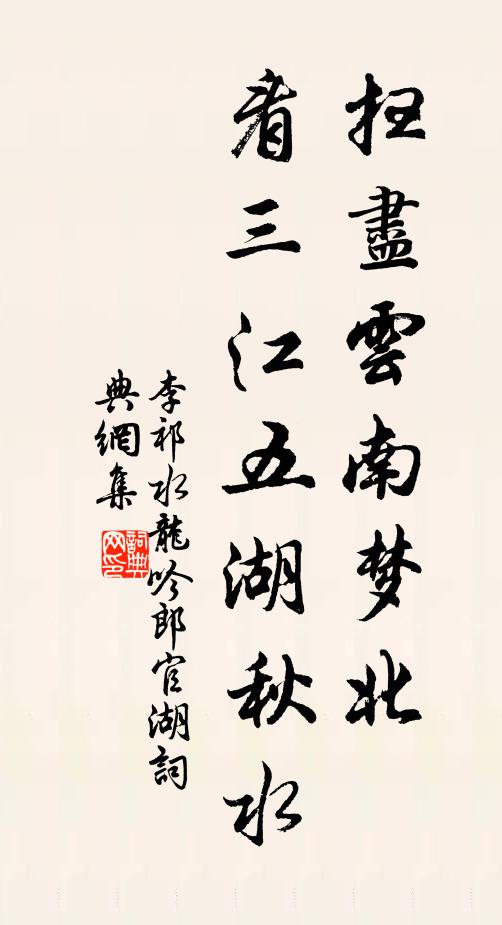 扫盡雲南梦北
看三江五湖秋水
李祁水龍吟郎官湖詞
典網集
詞典
网印